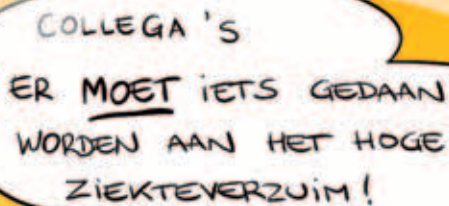 COLLEGA'S
ER MOET IETS GEDAAN
WORDEN AAN HET HOGE
ZIEKTEVERZUIM!